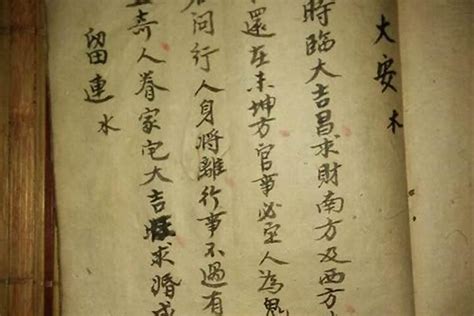 大安 木
時臨大吉昌求財南方及西方
還在未坤方官事必定人為鬼
問行人身將離行事不過有
奇人眷家宅大吉求婚成
留連 水